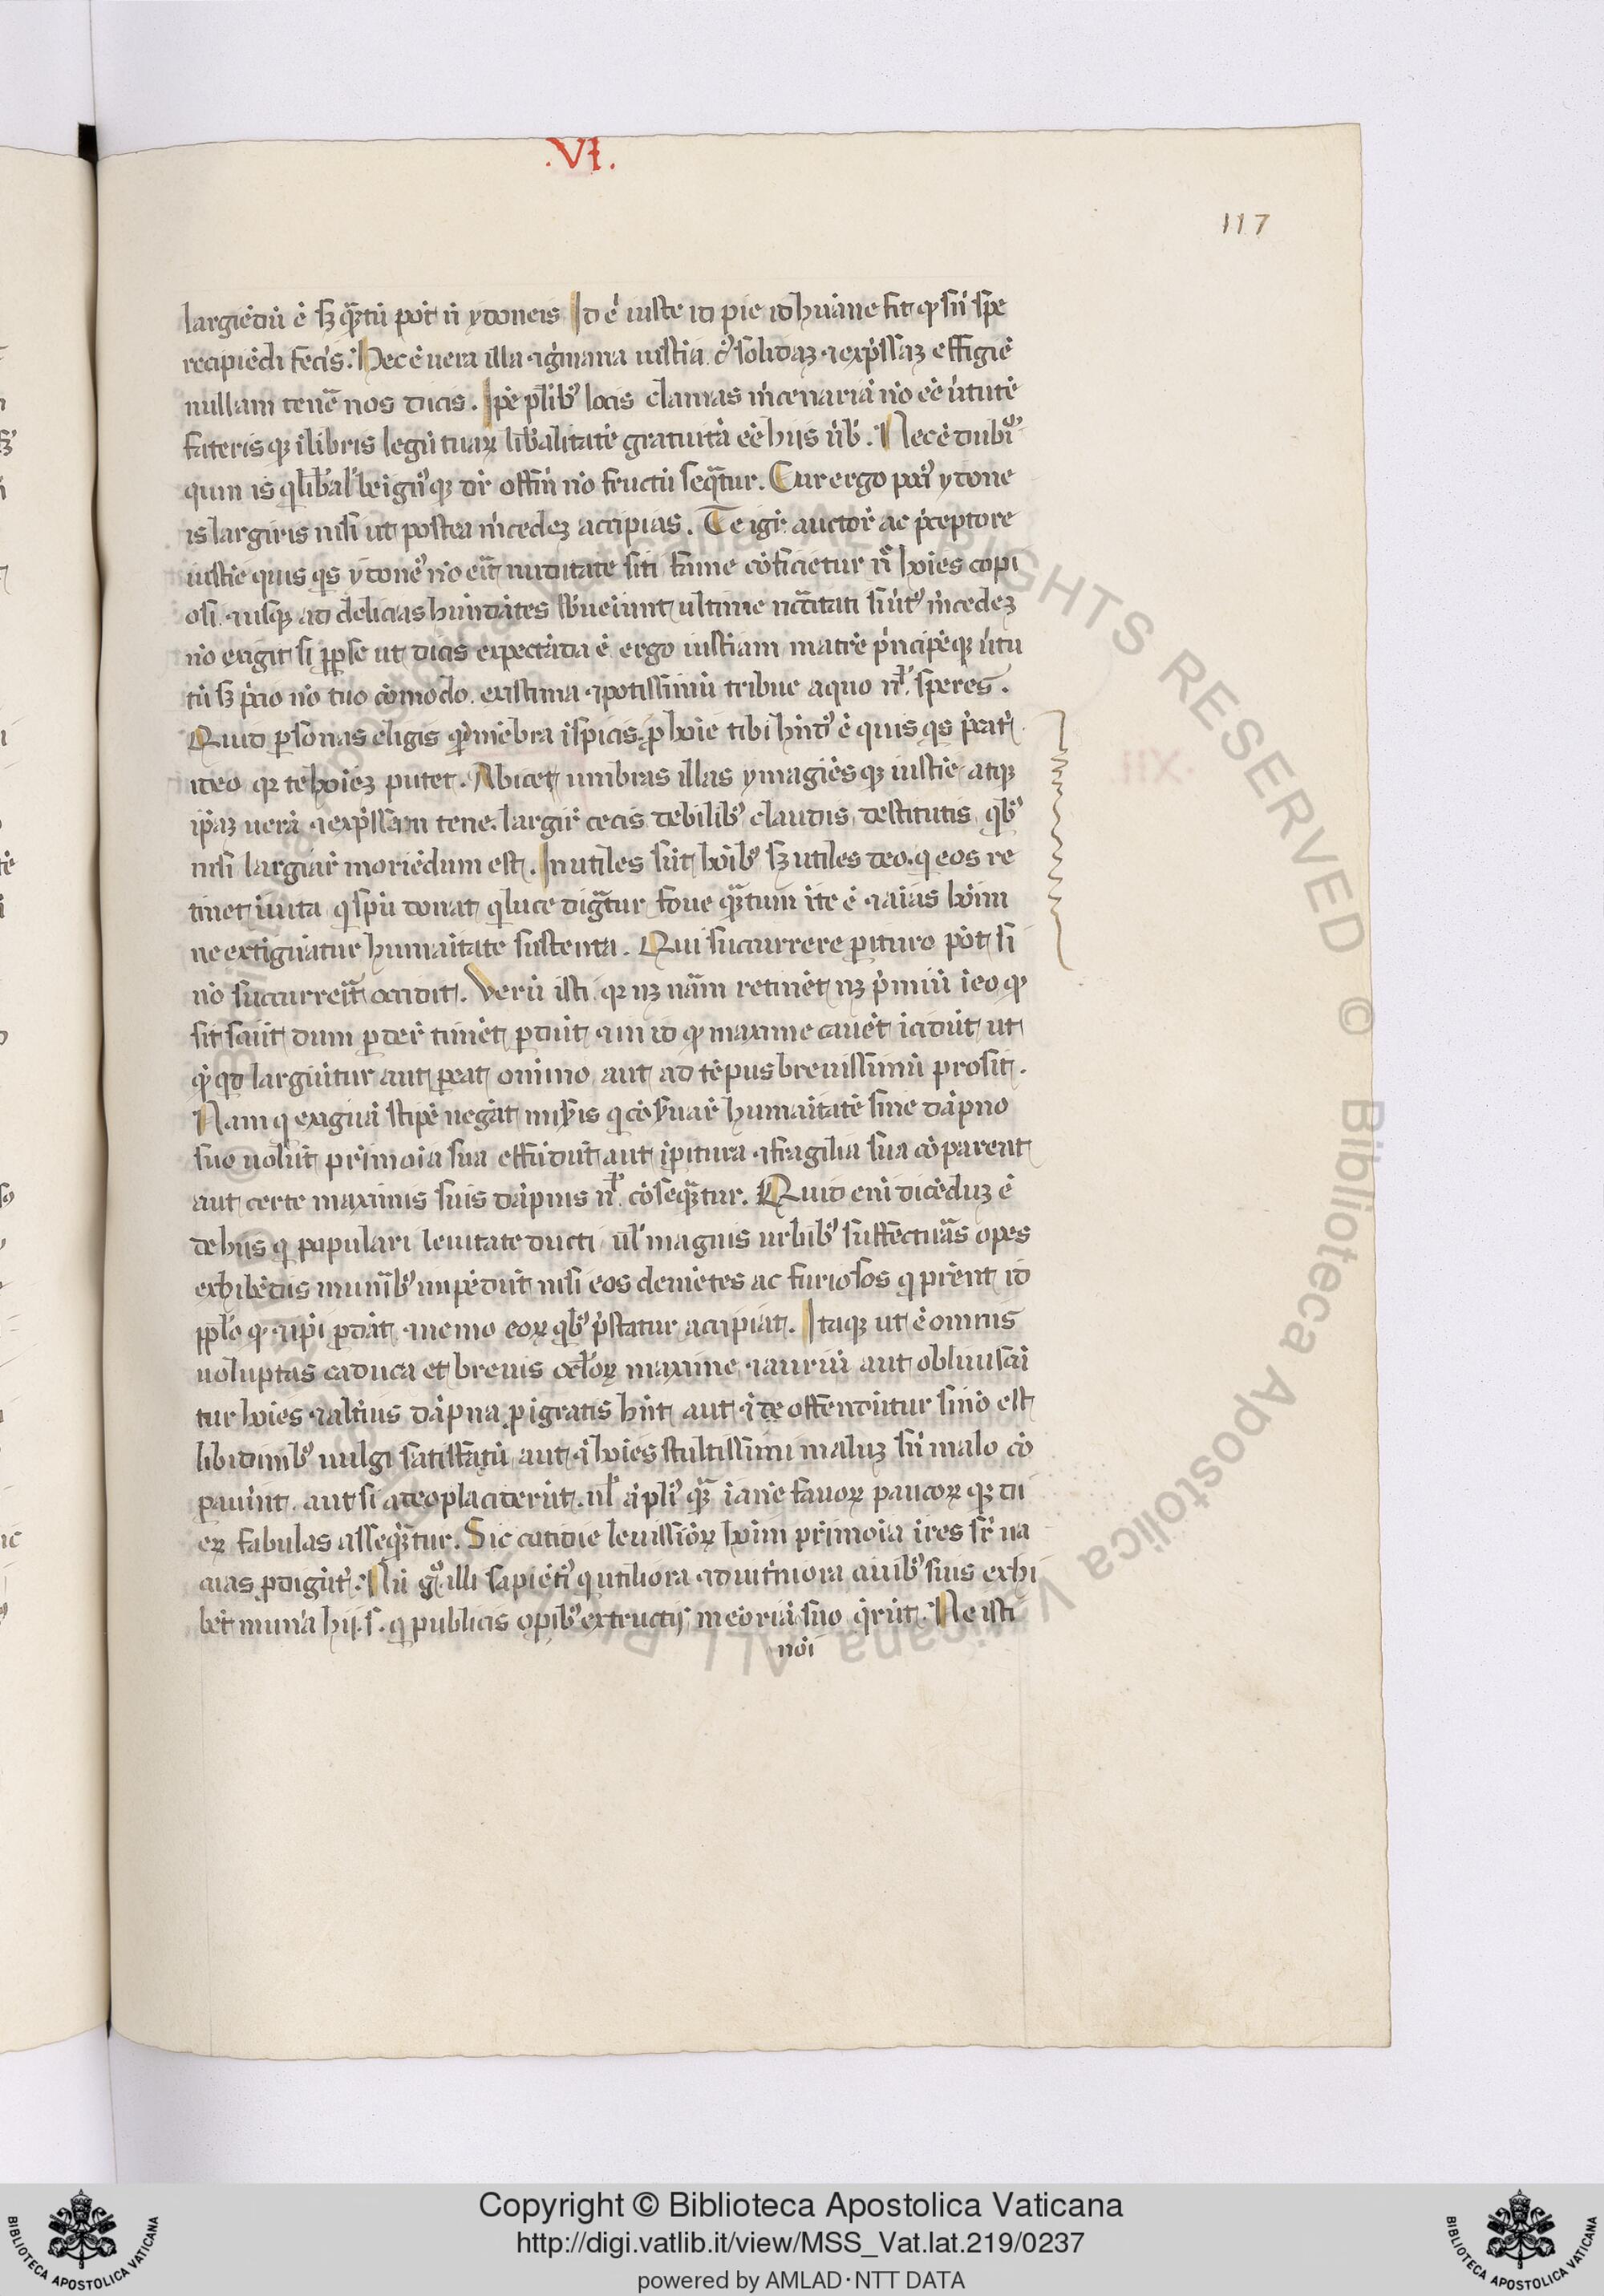 .VI.
117
largiēdū ē sꝫ qᷓtū pōt nͥ ydoneis Id ē iuste id pie id huāne fit qͩ sn̄ spe
recipiēdi fec̄is. Hec ē uera illa ⁊ gͥmana iustīa cͥꝰ solidaꝫ ⁊ exp̄ssaꝫ effigiē
nullam tenē nos dicis. Ip̄e plīb̾ locis clamas m̄cenariā nō eē ūtutē
faterisqꝫ ī libris legū tuaꝝ lib̄alitatē gratuitā eē hijs ūb̾. Nec ē dubiū
qum is q̇ lib̄al̾ beignꝰqꝫ dr̄ offm̄ nō fructū seqᷓtur. Cur ergo pociꝰ ydone
is largiris nisi ut postea m̄cedeꝫ accipias. Te igr̄ auctor̄ ac p̄ceptore
iustīe quis qs ydoneꝰ nō eīt nuditate siti fame cōficietur nͨ hoīes copi
osi ⁊ usqꝫ ad delicias hūndātes sb̄ueiunt ultime nc̄c̄itati si ūtꝰ m̄cedeꝫ
nō exigit si ꝓpt̄ se ut dicis expectāda ē ergo iustīam matrē p̄ncipēqꝫ ūtu
tū sꝫ p̄cio nō tuo cōmodo existima ⁊ potissimū tribue a quo nͥl speres.
Quid ꝑsonas eligis qͩ mēbra īspicis ꝓ hoīe tibi hn̄dꝰ ē quis qs p̄catͬ
ideo qꝛ te hoīeꝫ putet. Abice umbras illas ymaginēsqꝫ iustīe atqꝫ
ip̄aꝫ uerā ⁊ exp̄ssam tene. largir̄ cecis debilib̾ claudis destitutis qb̾
nisi largiar̄ moriēdum est. Inutiles sūt hoīb̾ sꝫ utiles deo. q̇ eos re
tinet ī uita q̇ spū donat q̇ luce dignatur foue qᷓtum ī te ē ⁊ aīas hoīm
ne extiguātur humāitate sustenta. Qui succurrere ꝑituro pōt si
nō succurreīt occidit. Verū isti qꝛ nꝫ nām retinēt nꝫ p̄miū ī eo qͩ
sit sciūt dum ꝑder̄ timēt ꝑdūt ⁊ in id qͩ maxime cauēt īcidūt ut
qͥqd largiūtur aut ꝑeat omīno aut ad tēpus breuissimū prosit.
Nam q̇ exiguā stipē negāt mis̄is q̇ cōs̄uar̄ humāitatē sine dāpno
suo uolūt pr̄imoīa sua effūdūt aut ꝑitura ⁊ fragilia sua cōparent
aut certe maximis suis dāpnis nͥl cōseqᷓtur. Quid eni dicēduꝫ ē
de hijs q̇ populari leuitate ducti ul̾ magnis urbib̾ suffectūas opes
exhibēdis munīb̾ impēdūt nisi eos demētes ac furiosos q̇ prēnt id
pplō qͩ ⁊ ip̄i ꝑdāt ⁊ nemo eoꝝ qb̾ p̄statur accipiāt. Itaqꝫ ut ē omnis
uoluptas caduca et breuis ocl̄oꝝ maxime ⁊ auriū aut obliuiscū
tur hoīes ⁊ alt̄ius dāpna ꝓ īgratis hn̄t aut ⁊ īde offendūtur si nō est
libidinib̾ uulgi satisfactū aut ⁊ hoīes stultissimi maluꝫ sn̄ malo cō
pauīnt aut si adeo placiderūt nͥl āpliꝰ qᷓ īanē fauoꝝ paucoꝝqꝫ di
eꝝ fabulas asseqᷓtur. Sic cotidie leuissioꝝ hoīm pr̄imoīa ī res sr̄ ua
cuas ꝓdigūtͬ. Nū gͦ illi sapiētiꝰ q̇ utiliora ⁊ diutniora ciuib̾ suis exhi
bēt muna hij .s. q̇ publicis opib̾ extructis memoriā suo q̄rūt. Ne isti
noī
Copyright © Biblioteca Apostolica Vaticana
http://digi.vatlib.it/view/MSS_Vat.lat.219/0237
powered by AMLAD·NTT DATA
BIBLIOTECA APOSTOLICA VATICANA
BIBLIOTECA APOSTOLICA VATICANA